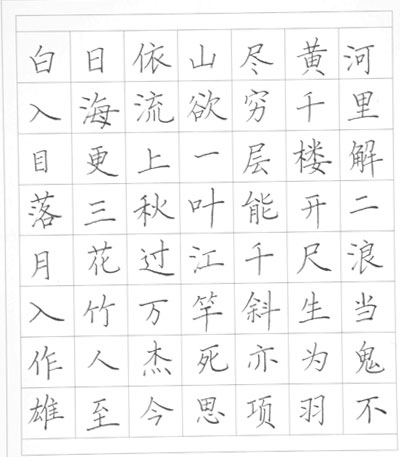 白日依山尽黄河
入海流欲穷千里
目更上一层楼解
落三秋叶能开二
月花过江千尺浪
入竹万竿斜生当
作人杰死亦为鬼
雄至今思项羽不